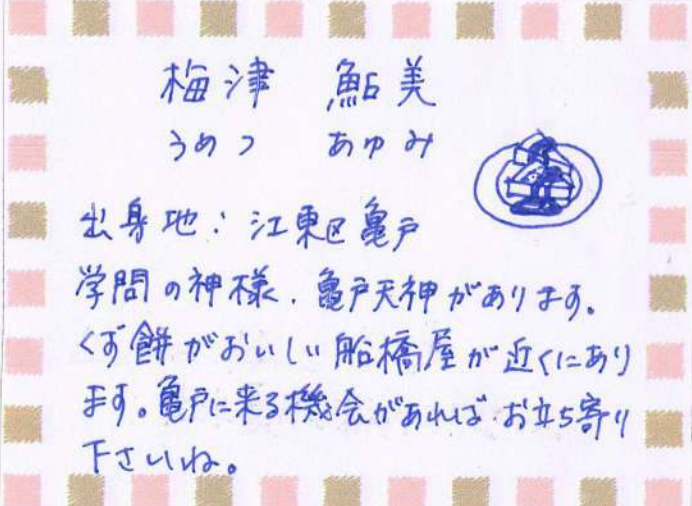 梅津 鮎美
うめつ あゆみ
出身地：江東区亀戸
学問の神様、亀戸天神があります。
くず餅がおいしい船橋屋が近くにあり
ます。亀戸に来る機会があれば、お立ち寄り
下さいね。